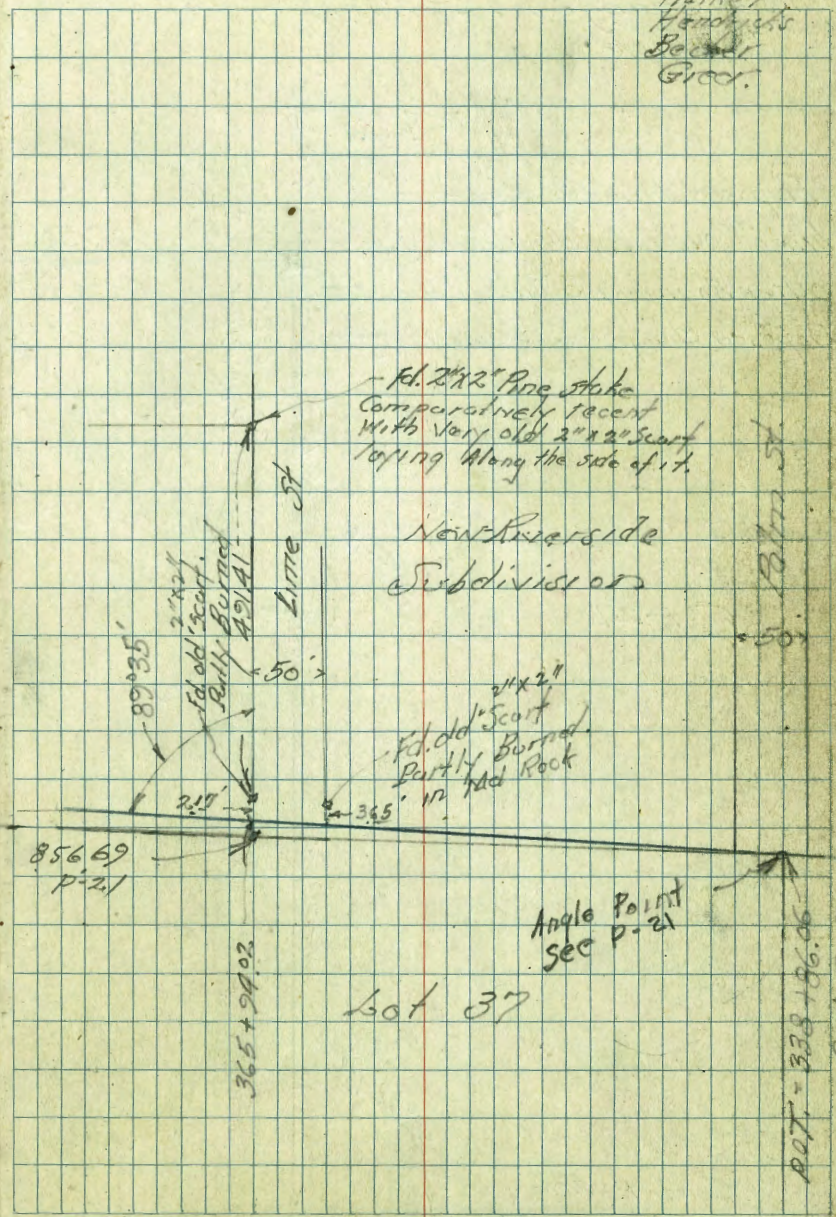 Hendricks
Becker
Greer.
Fd. 2"x2" Pine stake
Comparatively recent
With Very old 2"x2" Scart
laying Along the side of it.
Lime St
Palm St
New Riverside
Subdivision
2"x2"
Fd. old scart.
Partly Burned
491.41
89°35'
50'
50'
2"x2"
Fd. old Scart
Partly Burned.
in Md Rock
2.17'
3.65'
856.69
P-21
Angle Point
see P-21
365+94.02
Lot 37
P.O.T. = 338+86.06